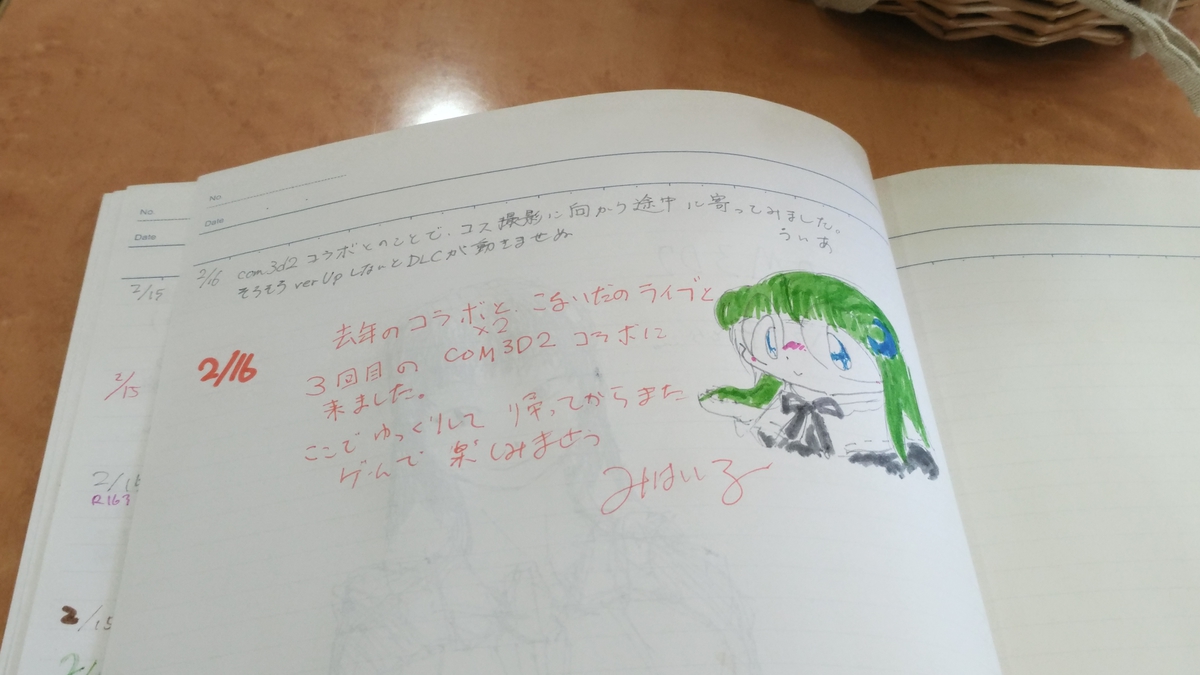 No.
Date
2/15
2/15
2/16
R163
2/15
No.
Date
2/16 com3d2 コラボとのことで、コス撮影に向かう途中に寄ってみました。
そろそろ verUpしないとDLCが動きませぬ
うぃあ
2/16
去年のコラボと、こないだのライブと
×2
3回目の COM3D2 コラボに
来ました。
ここで ゆっくりして 帰ってからまた
ゲームで 楽しみませう
みはいる